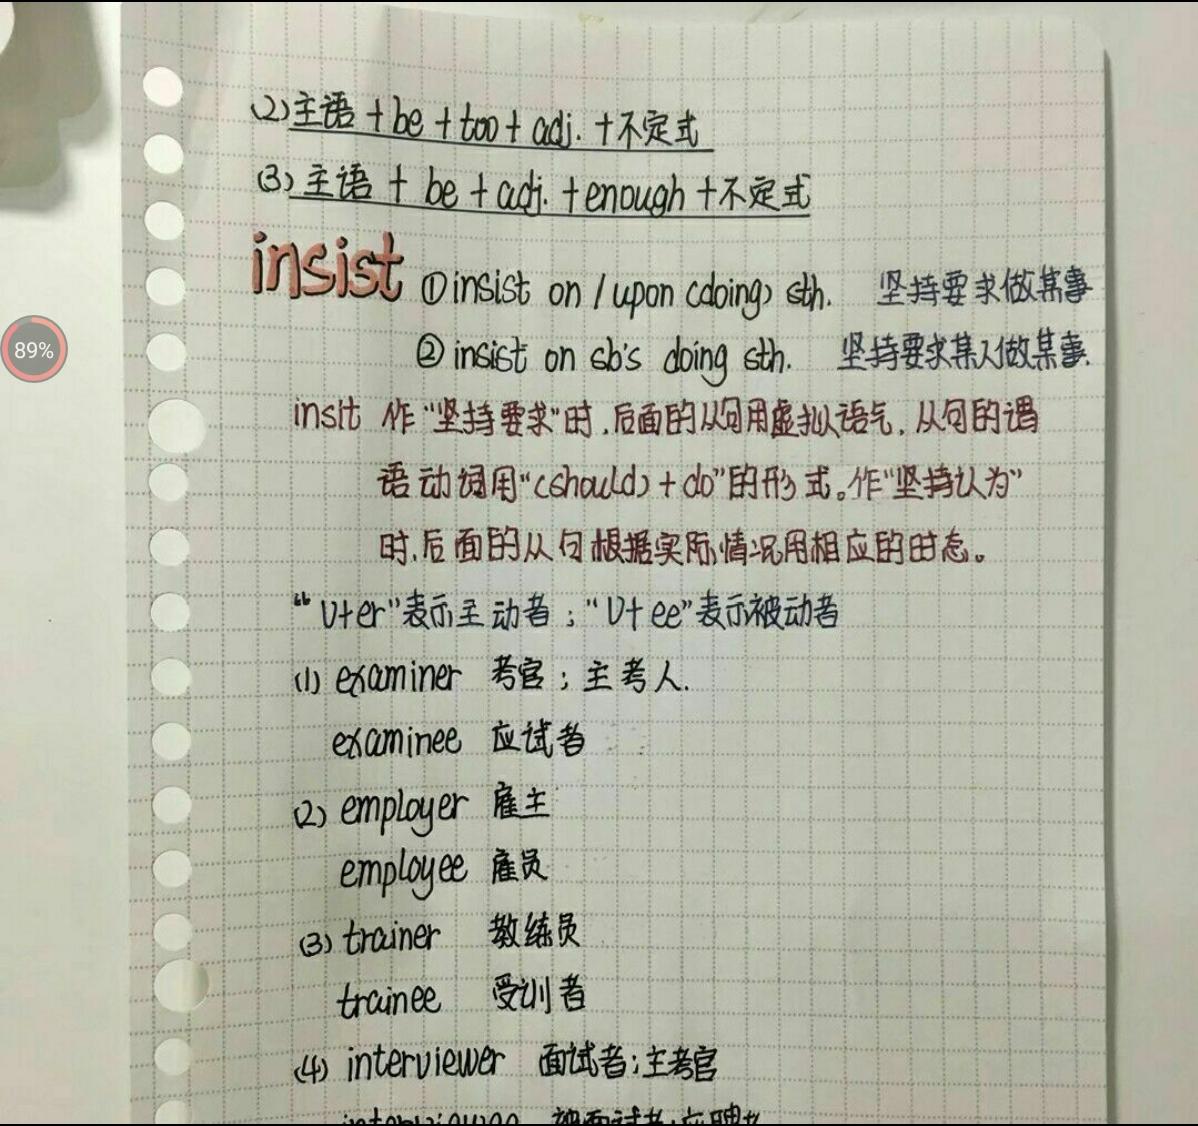 (2) 主语 + be + too + adj. + 不定式
(3) 主语 + be + adj. + enough + 不定式
insist ① insist on / upon (doing) sth. 坚持要求做某事
② insist on sb's doing sth. 坚持要求某人做某事.
89%
insit 作“坚持要求”时,后面的从句用虚拟语气,从句的谓
语动词用“(should) + do”的形式。作“坚持认为”
时,后面的从句根据实际情况用相应的时态。
“V+er”表示主动者;“V+ee”表示被动者
(1) examiner 考官;主考人.
examinee 应试者
(2) employer 雇主
employee 雇员
(3) trainer 教练员
trainee 受训者
(4) interviewer 面试者;主考官
interviewee 被面试者;应聘者